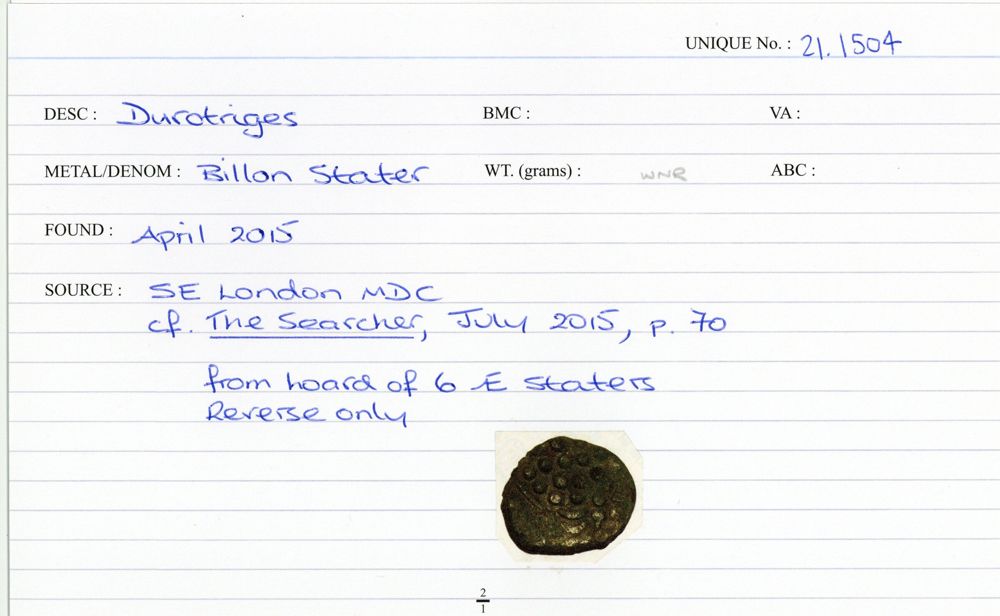 UNIQUE No. : 21.1504
DESC : Durotriges BMC : VA :
METAL/DENOM : Billon Stater WT. (grams) : WNR ABC :
FOUND : April 2015
SOURCE : SE London MDC
cf. The Searcher, July 2015, p. 70
from hoard of 6 Æ staters
Reverse only
2
1